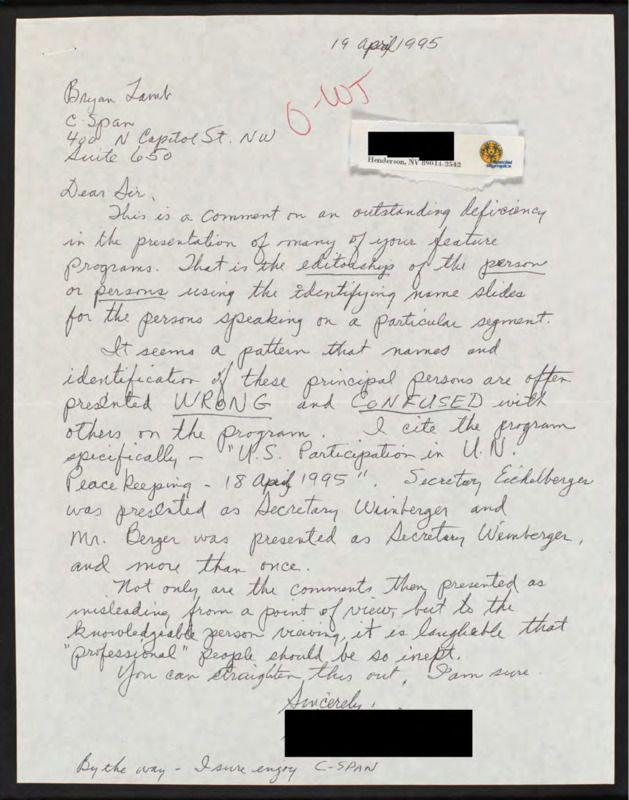 19 April 1995
Bryan Lamb
C-Span
400 N Capitol St. NW
Suite 650
O-WJ
Henderson, NV 89014-2542
Special
Olympics
Dear Sir,
This is a comment on an outstanding deficiency
in the presentation of many of your feature
programs. That is the editorship of the person
or persons using the identifying name slides
for the persons speaking on a particular segment.
It seems a pattern that names and
identification of these principal persons are often
presented WRONG and CONFUSED with
others on the program. I cite the program
specifically - "U.S. Participation in U.N.
Peace Keeping - 18 April 1995". Secretary Eichelberger
was presented as Secretary Weinberger and
Mr. Berger was presented as Secretary Weinberger,
and more than once.
Not only are the comments then presented as
misleading from a point of view, but to the
knowledgeable person viewing, it is laughable that
"professional" people should be so inept.
You can straighten this out, I'am sure.
Sincerely,
By the way - I sure enjoy C-SPAN